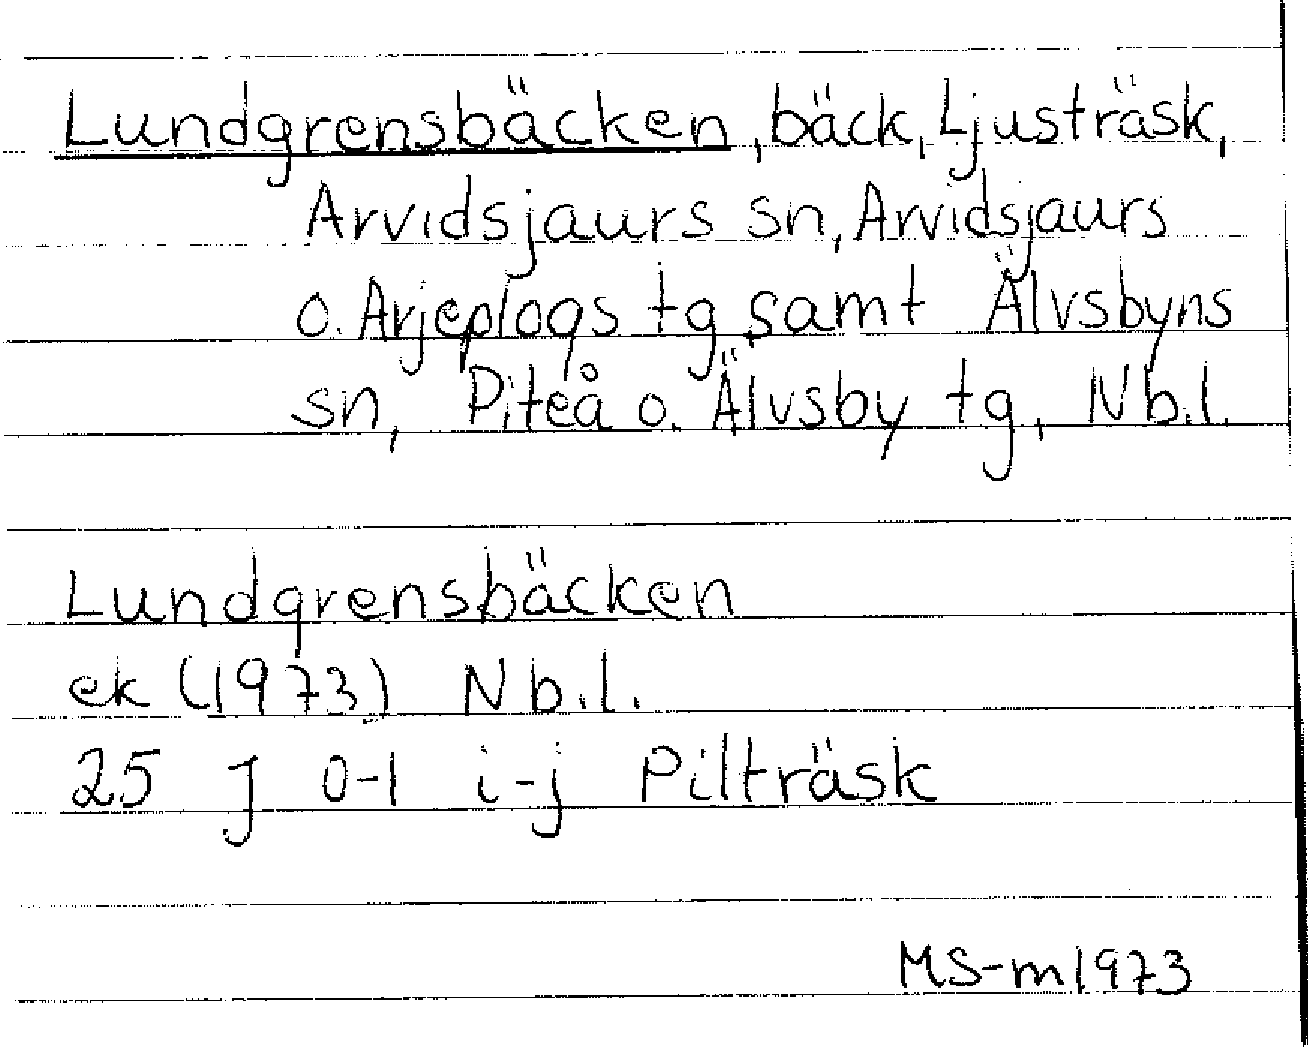 Lundgrensbäcken, bäck, Ljusträsk,
Arvidsjaurs sn, Arvidsjaurs
o. Arjeplogs tg samt Älvsbyns
sn, Piteå o. Älvsby tg, Nb.l.
Lundgrensbäcken
ek (1973) Nb.l.
25 J 0-1 i-j Pilträsk
MS-m1973